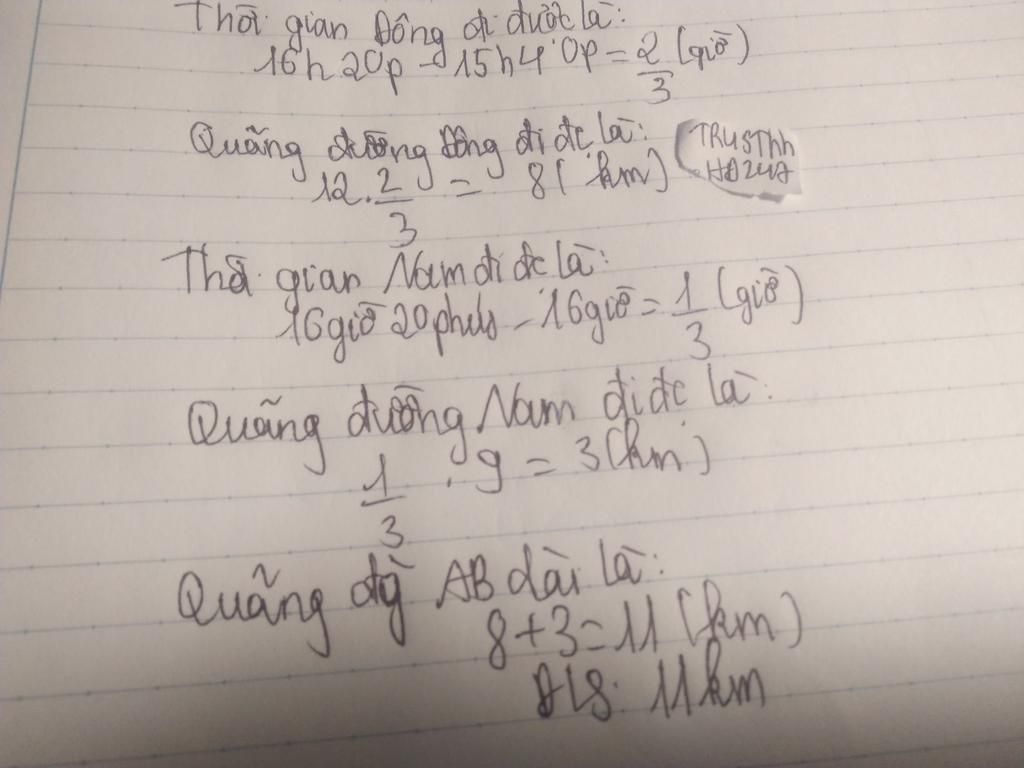 Thời gian Đông đi được là:
16h20p - 15h40p = 2/3 (giờ)
Quãng đường Đông đi đc là:
12 . 2/3 = 8 (km)
TRUSThh
HĐ247
Thời gian Nam đi đc là:
16giờ 20phút - 16giờ = 1/3 (giờ)
Quãng đường Nam đi đc là:
1/3 . 9 = 3 (km)
Quãng đg̀ AB dài là:
8+3=11 (km)
Đ/S: 11km